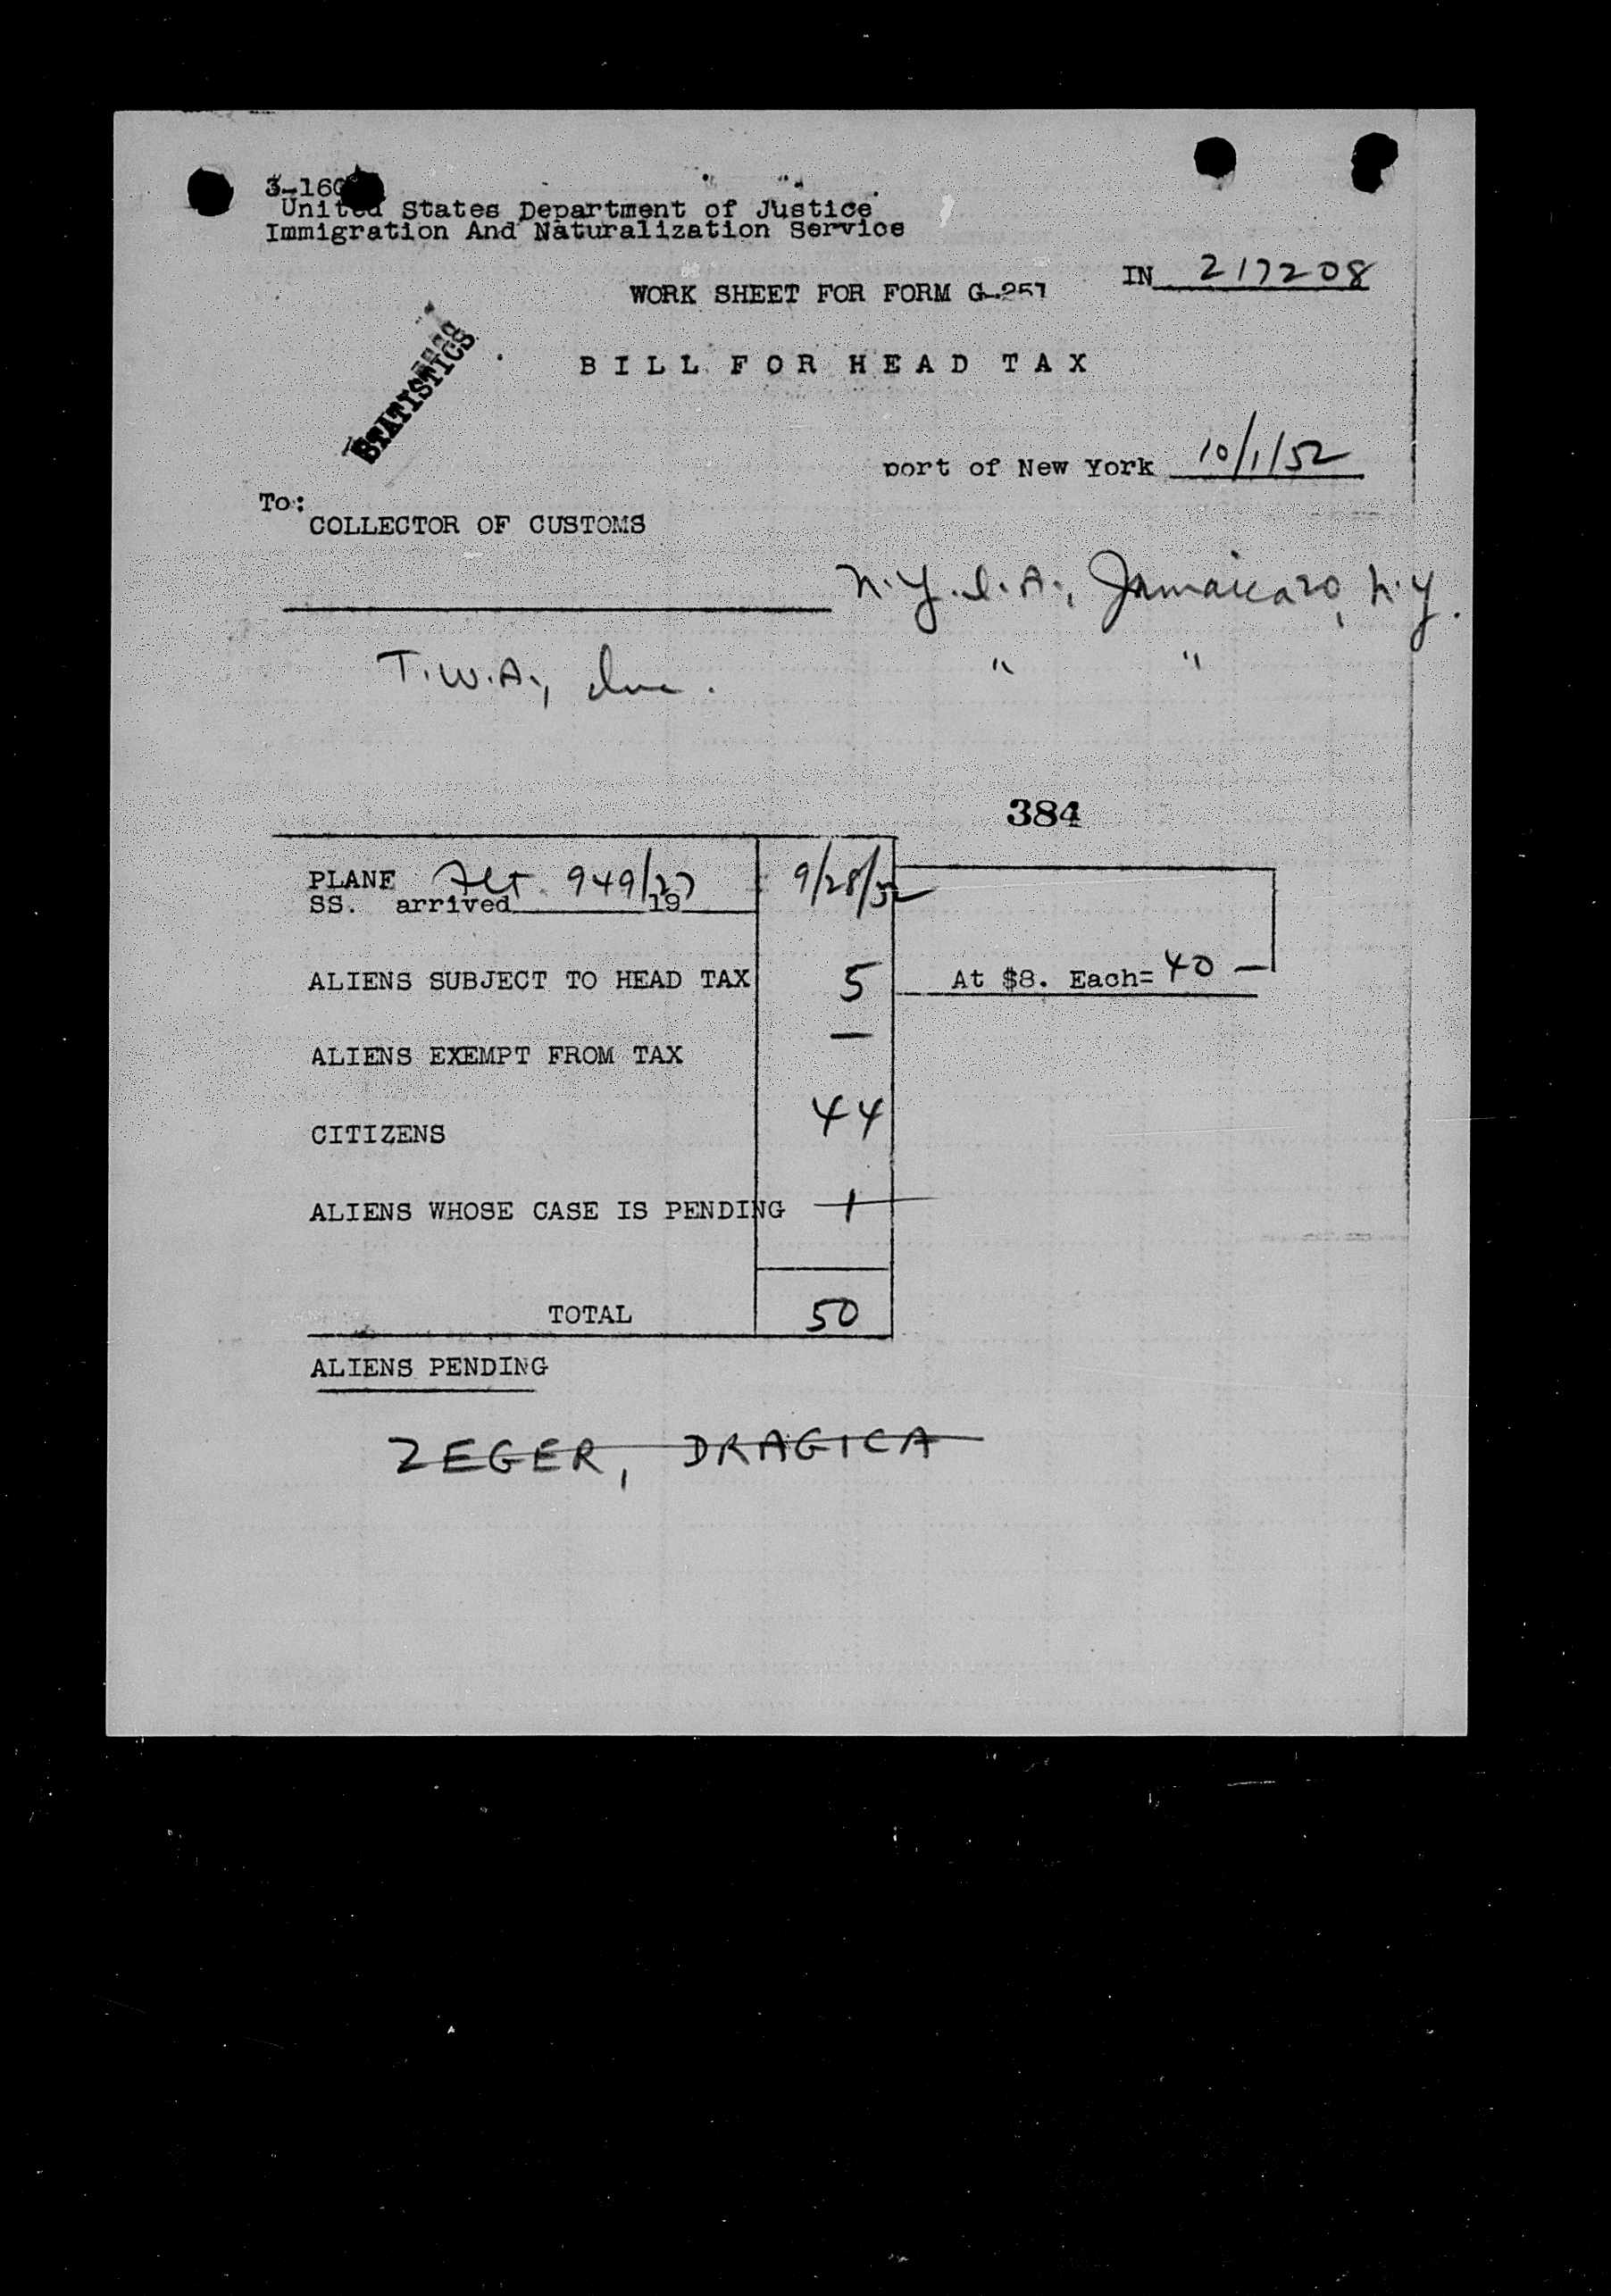 3-160
United States Department of Justice
Immigration And Naturalization Service
IN 217208
WORK SHEET FOR FORM G-257
BILL FOR HEAD TAX
STATISTICS
port of New York 10/1/52
To:
COLLECTOR OF CUSTOMS
N.Y.I.A., Jamaica 30, N.Y.
T.W.A., Inc. " "
384
PLANE Flt. 949/27 9/28/52
SS. arrived 19
ALIENS SUBJECT TO HEAD TAX 5 At $8. Each= 40 —
ALIENS EXEMPT FROM TAX —
CITIZENS 44
ALIENS WHOSE CASE IS PENDING 1
TOTAL 50
ALIENS PENDING
ZEGER, DRAGICA